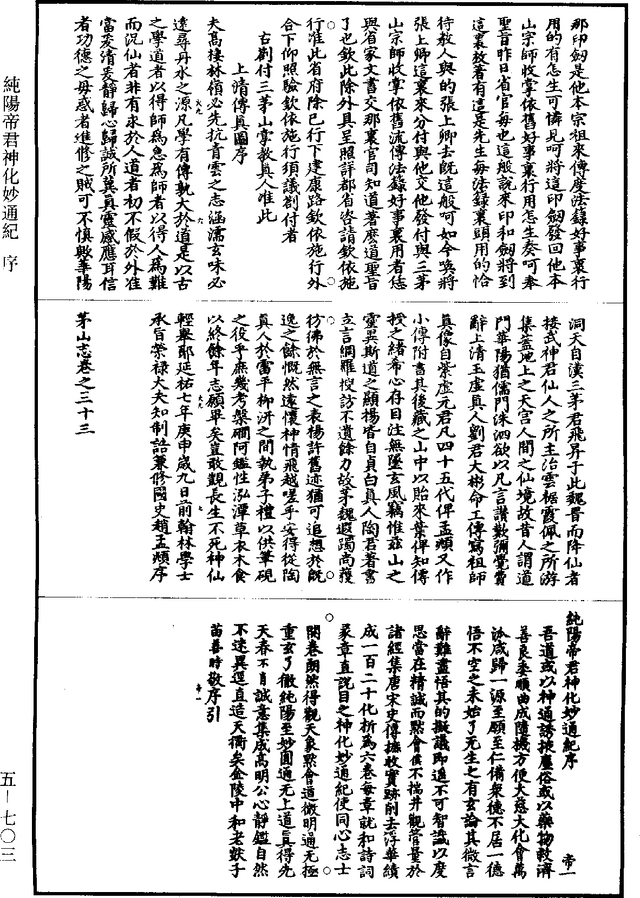 那印劒是他本宗祖來傳度法籙好事裏行
用的有怎生可憐見呵將這印劒發回他本
山宗師收掌依舊好事裏行用怎生奏呵奉
聖旨昨日省官每也這般說來印和劒將到
這裏放着有這是先生每法籙裏頭用的恰
待教人與的張上卿去旣這般呵如今喚將
張上卿這裏來分付與他交他發付與三茅
山宗師收掌依舊流傳法籙好事裏用者恁
與省家文書交那裏官司知道者麽道聖旨
了也欽此除外具呈照詳都省咨請欽依施
行准此省府除已行下建康路欽依施行外
合下仰照驗欽依施行須議劄付者
右劄付三茅山掌教真人准此
上清傳真圖序
夫高棲林嶺必先抗青雲之志涵濡玄味必
遠尋丹水之源凡學有傳孰大於道是以古
之學道者以得師爲急爲師者以得人爲難
而況仙者非有求於人道者初不假於外准
當爰清爰靜歸心歸誠所冀真靈感應耳信
者功德之母惑者進修之賊可不慎歟華陽
洞天自漢三茅君飛昇于此魏晋而降仙者
接武神君仙人之所主治雲裾霞佩之所游
集蓋地上之天宮人間之仙境故昔人謂道
門華陽猶儒門洙泗欲以凡言讃歎彌覺費
辭上清玉虛真人劉君大彬命工傳寫祖師
真像自紫虛元君凡四十五代俾孟頫又作
小傳附書其後藏之山中以貽來葉俾知傳
授之緒希心存目注無墜玄風竊惟茲山之
靈異斯道之顯揚皆自貞白真人陶君著書
立言綱羅搜訪不遺餘力故茅魏遐躅尚獲
彷彿於無言之表楊許舊迹猶可追想於旣
逸之餘慨然遠懷神情飛越嗟乎安得從陶
真人於雷平柳汧之間執弟子禮以供筆硯
之役乎庶幾考槃磵阿鑑性泓潭草衣木食
以終餘年志願畢矣豈敢觀長生不死神仙
輕舉耶延祐七年庚申歲九日前翰林學士
承旨榮禄大夫知制誥兼修國史趙孟頫序
茅山志卷之三十三
純陽帝君神化妙通紀序
帝一
吾道或以神通誘掖塵俗或以藥物救濟
善良委順曲成隨機方便大慈大化會萬
派咸歸一源至願至仁備衆德不居一德
悟不空之未始了先生之有玄論其微言
辭難盡悟其的擬議即逺不可智識以度
思當在精誠而默會僕不揣井觀管量於
諸經集唐宋史傳摭收實跡削去浮華績
成一百二十化析爲六卷每章就和詩詞
篆章直說目之神化妙通紀使同心志士
開卷朗然得觀天象默會道微明通无極
重玄了徹純陽至妙圓通无上道真得先
天春不肖誠意集成高明公心靜鑑自然
不逹異逕直造天衢矣金陵中和老麩子
苗善時敬序引
帝一
純陽帝君神化妙通紀 序
五—七〇三